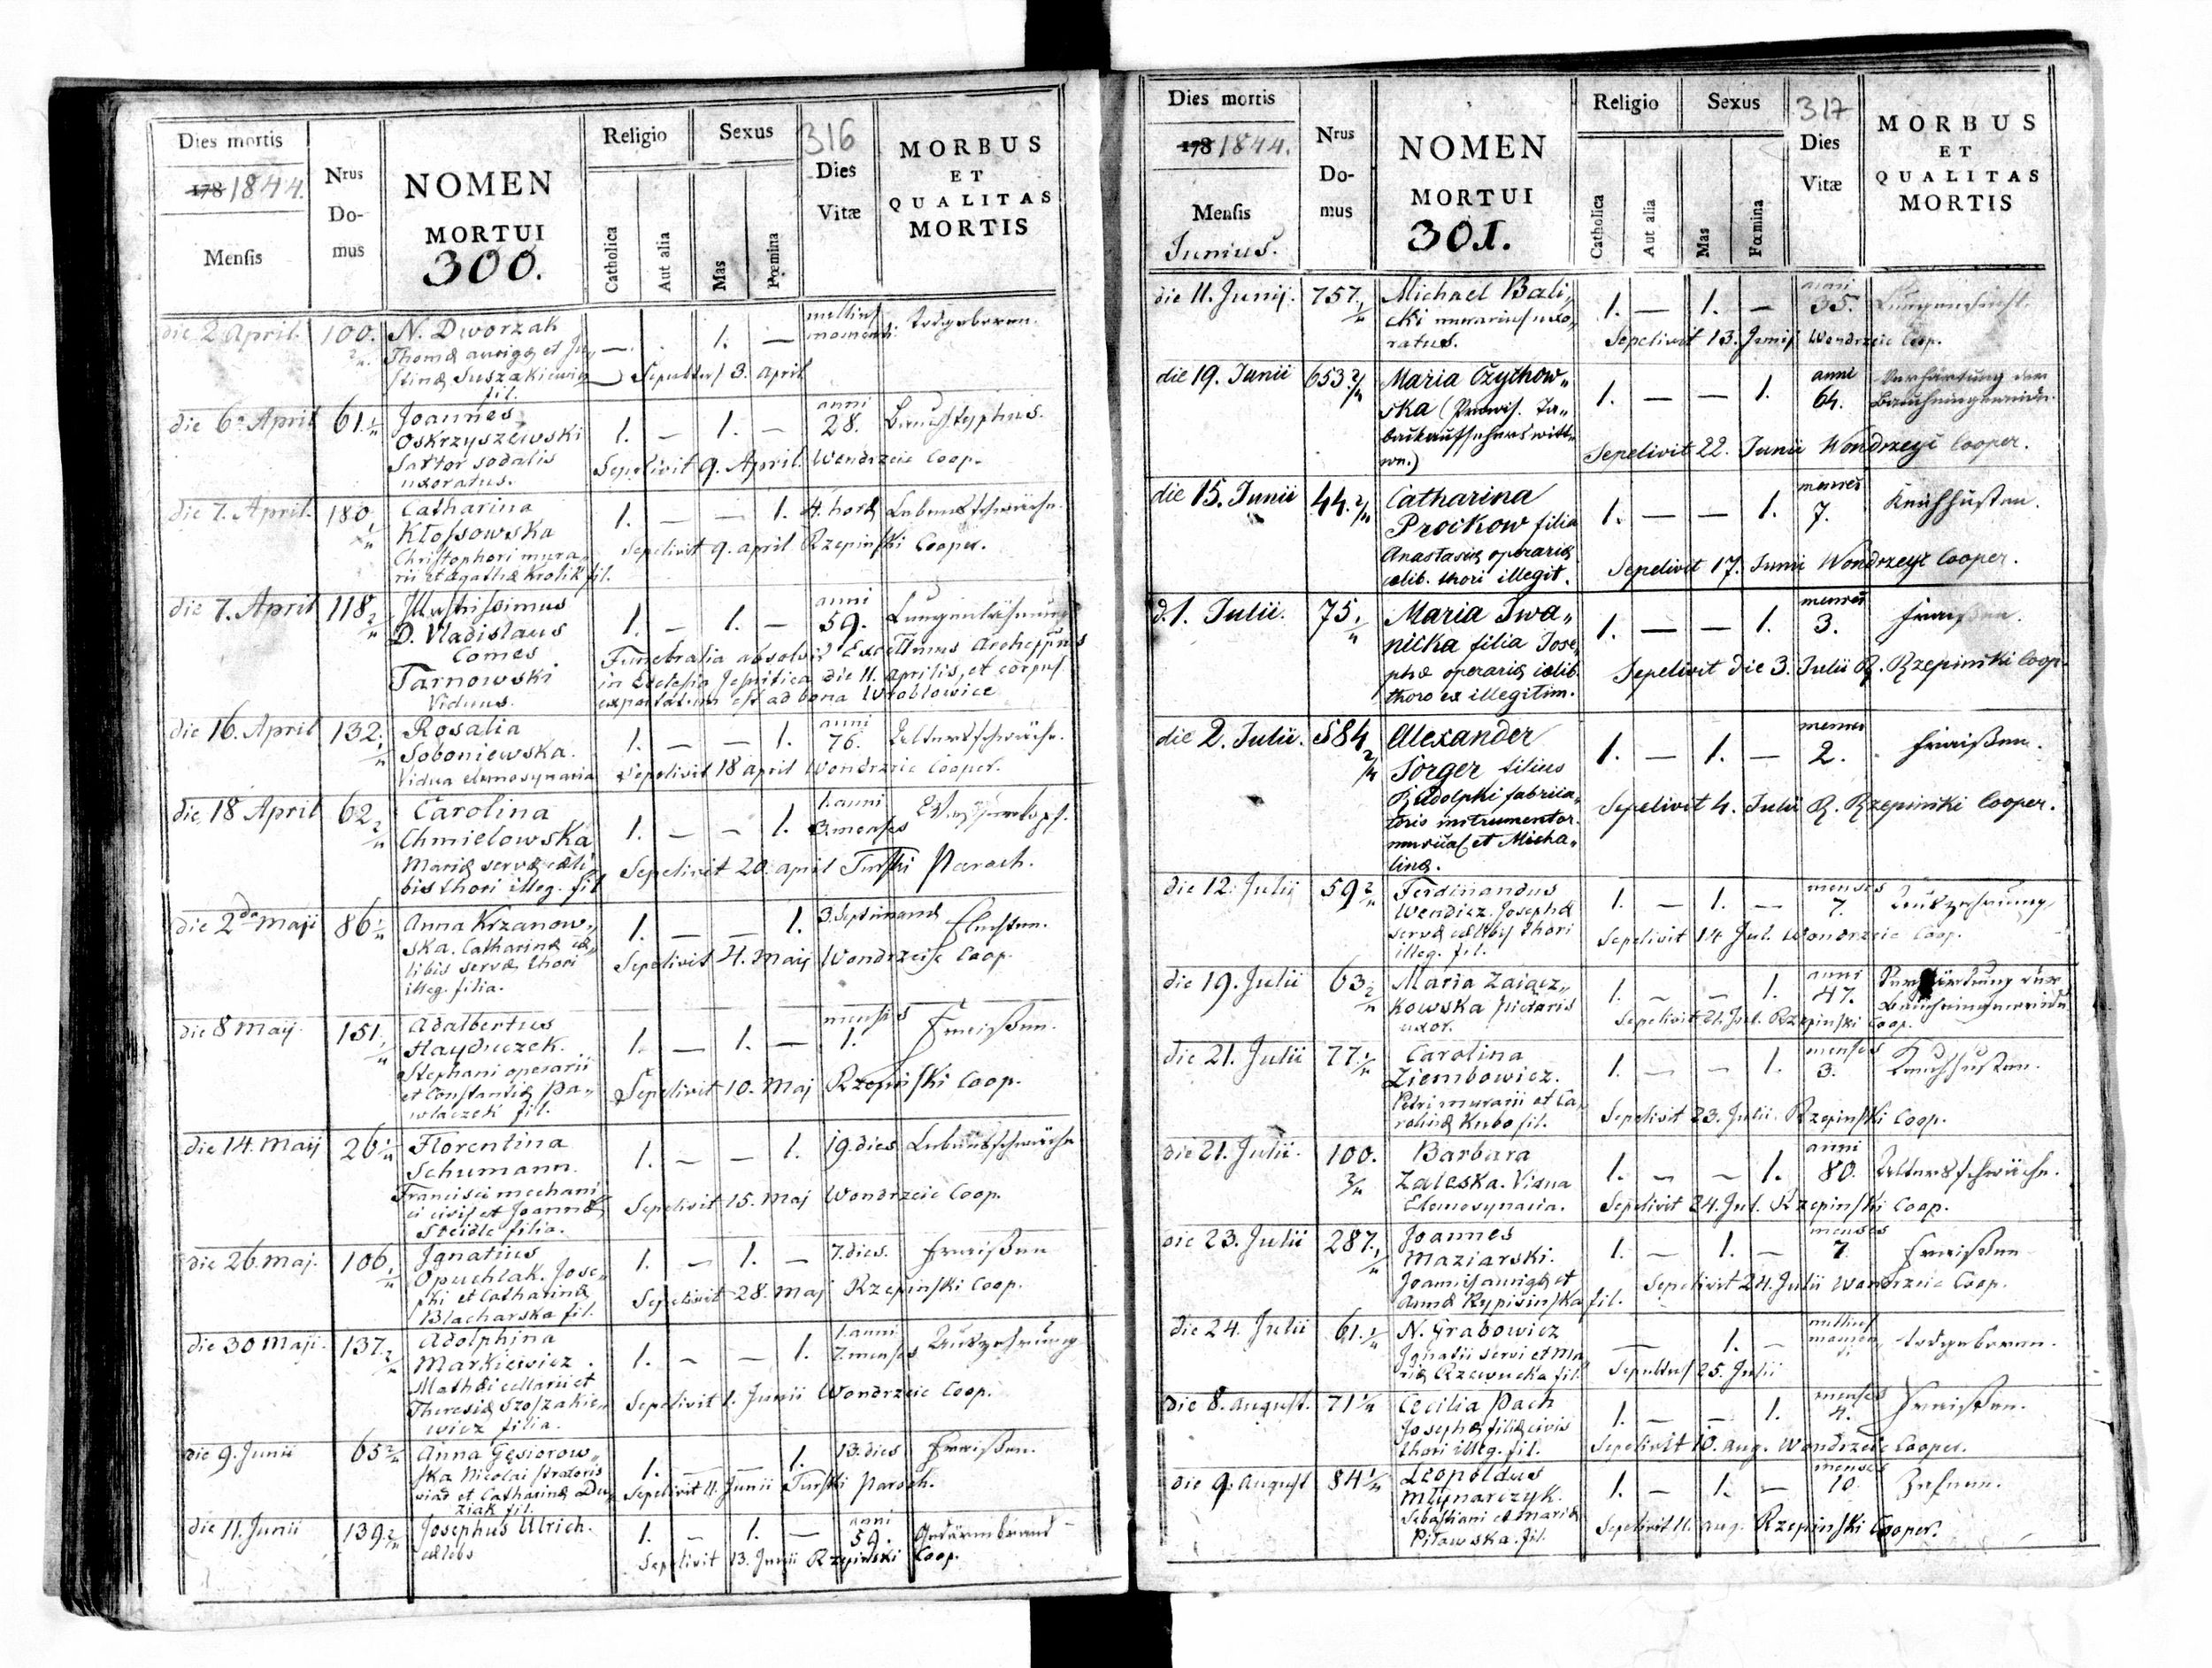 Dies mortis
178 1844.
Mensis
Nrus
Do-
mus
NOMEN
MORTUI
300.
Religio
Catholica
Aut alia
Sexus
Mas
Fœmina
316
Dies
Vitæ
MORBUS
ET
QUALITAS
MORTIS
die 2 April. 100. N. Dworzak — 1. — Todgeboren.
Thomæ aurigæ et Ju„
stinæ Suszakiewicz Sepultus 3. April
fil.
die 6a April 61. Joannes 1. — 1. — anni 28. Bauchtyphus.
Oskrzyszewski
Sartor sodalis Sepelivit 9. April. Wondrzeie Coop.
uxoratus.
die 7. April. 180. Catharina 1. — — 1. 4. horæ Lebensschwäche.
Kłossowska
Christophori mura„ Sepelivit 9. april Rzepinski Cooper.
rii et Agathæ Krolik fil.
die 7. April 118 Illustrissimus 1. — 1. — anni 59. Lungenlähmung
D. Vladislaus
Comes Funebralia absolvit
Tarnowski in Ecclesia Jesuitica die 11. Aprilis, et corpus
Viduus. exportatum est ad bona Wroblowice
die 16. April 132. Rosalia 1. — — 1. anni 76. Altersschwäche.
Soboniewska.
Vidua elemosynaria Sepelivit 18 april Wondrzeie Cooper.
die 18 April 62 Carolina 1. — — 1. 1. anni 3. menses Wasserkopf.
Chmielowska
Mariæ servæ cæli Sepelivit 20. april Turski Paroch.
bis thori illeg. fil
die 2da Maji 86 Anna Krzanow„ 1. — — 1. 3. Septimanæ
ska. Catharinæ cæ„
libis servæ thori Sepelivit 4. Maij Wondrzeie Coop.
illeg. filia.
die 8 Maij. 151. Adalbertus 1. — 1. — mensis 1. Fraißen.
Hayduczek.
Stephani operarii
et Constantiæ Pa„ Sepelivit 10. Maj Rzepinski Coop.
wlaczek fil.
die 14. Maij 26 Florentina 1. — — 1. 19. dies Lebensschwäche
Schumann.
Francisci mechani
ci civis et Joannæ Sepelivit 15. Maj Wondrzeie Coop.
Steidle filia.
die 26. Maj. 106. Ignatius 1. — 1. — 7. dies. Fraißen
Opuchlak. Jose„
phi et Catharinæ Sepelivit 28. Maj Rzepinski Coop.
Blacharska fil.
die 30 Maji. 137. Adolphina 1. — — 1. 1. anni 7. menses Auszehrung
Markiewicz.
Mathæi cellarii et
Theresiæ Szoszakie„ Sepelivit 1. Junii Wondrzeie Coop.
wicz filia.
die 9. Junii 65 Anna Gęsiorow„ 1. — — 1. 13. dies Fraißen.
ska Nicolai stratoris
viaɾ et Catharinæ Du„ Sepelivit 11. Junii Turski Paroch.
ziak fil.
die 11. Junii 139. Josephus Ulrich. 1. — 1. — anni 59. Gedärmbrand
cælebs Sepelivit 13. Junii Rzepinski Coop.
Dies mortis
178 1844.
Mensis
Junius.
Nrus
Do-
mus
NOMEN
MORTUI
301.
Religio
Catholica
Aut alia
Sexus
Mas
Fœmina
317
Dies
Vitæ
MORBUS
ET
QUALITAS
MORTIS
die 11. Junij. 757. Michael Bali„ 1. — 1. — anni 35. Lungensucht.
cki murarius uxo„
ratus. Sepelivit 13. Junij Wondrzeie Coop.
die 19. Junii 653. Maria Czychow„ 1. — — 1. anni 64. Verhärtung der
ska (Provis. Ta„ Baucheingeweide.
backaufsehers witt„
we.) Sepelivit 22. Junii Wondrzeyc Cooper.
die 15. Junii 44. Catharina 1. — — 1. menses 7. Keuchhusten.
Prockow filia
Anastasiæ operariæ
cælib. thori illegit. Sepelivit 17. Junii Wondrzeyc Cooper.
d. 1. Julii. 75. Maria Iwa„ 1. — — 1. menses 3. Fraißen.
nicka filia Jose„
phæ operariæ cælib. Sepelivit die 3. Julii R. Rzepinski Coop.
thoro ex illegitim.
die 2. Julii. 584 Alexander 1. — 1. — menses 2. Fraißen.
Sorger filius
Rudolphi fabrica„ Sepelivit 4. Julii R. Rzepinski Cooper.
toris instrumentor.
musical et Micha„
linæ.
die 12. Julij 59 Ferdinandus 1. — 1. — menses 7. Auszehrung
Wendicz. Josephæ
servæ cælibis thori Sepelivit 14 Jul. Wondrzeie Coop.
illeg. fil.
die 19. Julii 63 Maria Zaiącz„ 1. — — 1. anni 47. Verhärtung der
kowska pictoris Baucheingeweide
uxor. Sepelivit 21. Jul. Rzepinski Coop.
die 21. Julii 77. Carolina 1. — — 1. menses 3. Keuchhusten.
Ziembowicz.
Petri murarii et Ca„
rolinæ Kubo fil. Sepelivit 23. Julii. Rzepinski Coop.
die 21. Julii. 100. Barbara 1. — — 1. anni 80. Altersschwäche.
Zaleska. Vidua
Elemosynaria. Sepelivit 24. Jul. Rzepinski Coop.
die 23. Julii 287. Joannes 1. — 1. — menses 7. Fraißen
Maziarski.
Joannis aurigæ et Sepelivit 24. Julii Wondrzeie Coop.
Annæ Rypisinska fil.
die 24. Julii 61. N. Grabowicz — 1. — todgeboren.
Ignatii servi et Ma
riæ Rzewucka fil. Sepultus 25. Julii
die 8. August. 71 Cecilia Pach 1. — — 1. menses 4. Fraißen.
Josephæ filiæ civis
thori illeg. fil. Sepelivit 10. Aug. Wondrzeie Cooper.
die 9. August 84 Leopoldus 1. — 1. — menses 10. Zahnen.
Młynarczyk.
Sebastiani et Mariæ Sepelivit 11. Aug. Rzepinski Cooper.
Pitawska. fil.